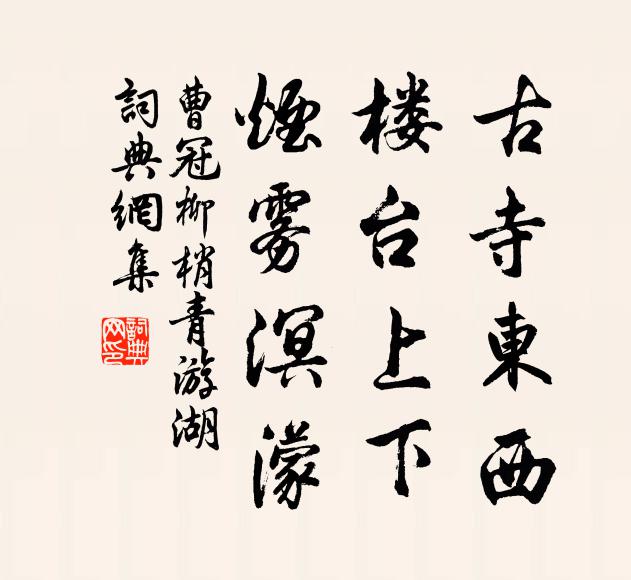 古寺東西
楼台上下
煙雾溟濛
曹冠柳梢青游湖
詞典網集
詞典网印